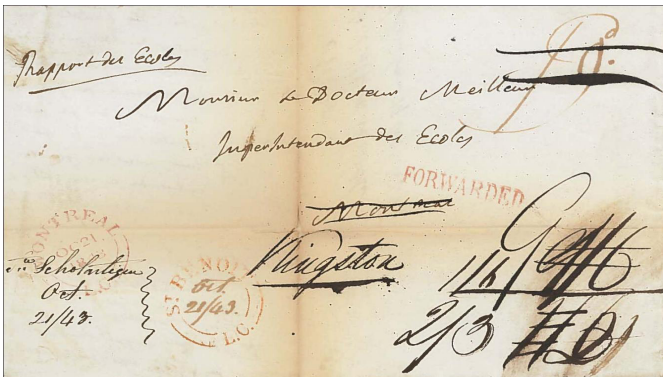 Rapport des Ecoles
Monsieur Le Docteur Meilleur
Superintendant des Ecoles
FORWARDED
Montreal
Kingston
1/6
2/3
MONTREAL
OC 21
L.C.
Scholastique
Oct.
21/43.
ST BENOIT
Oct
21/43.
L.C.